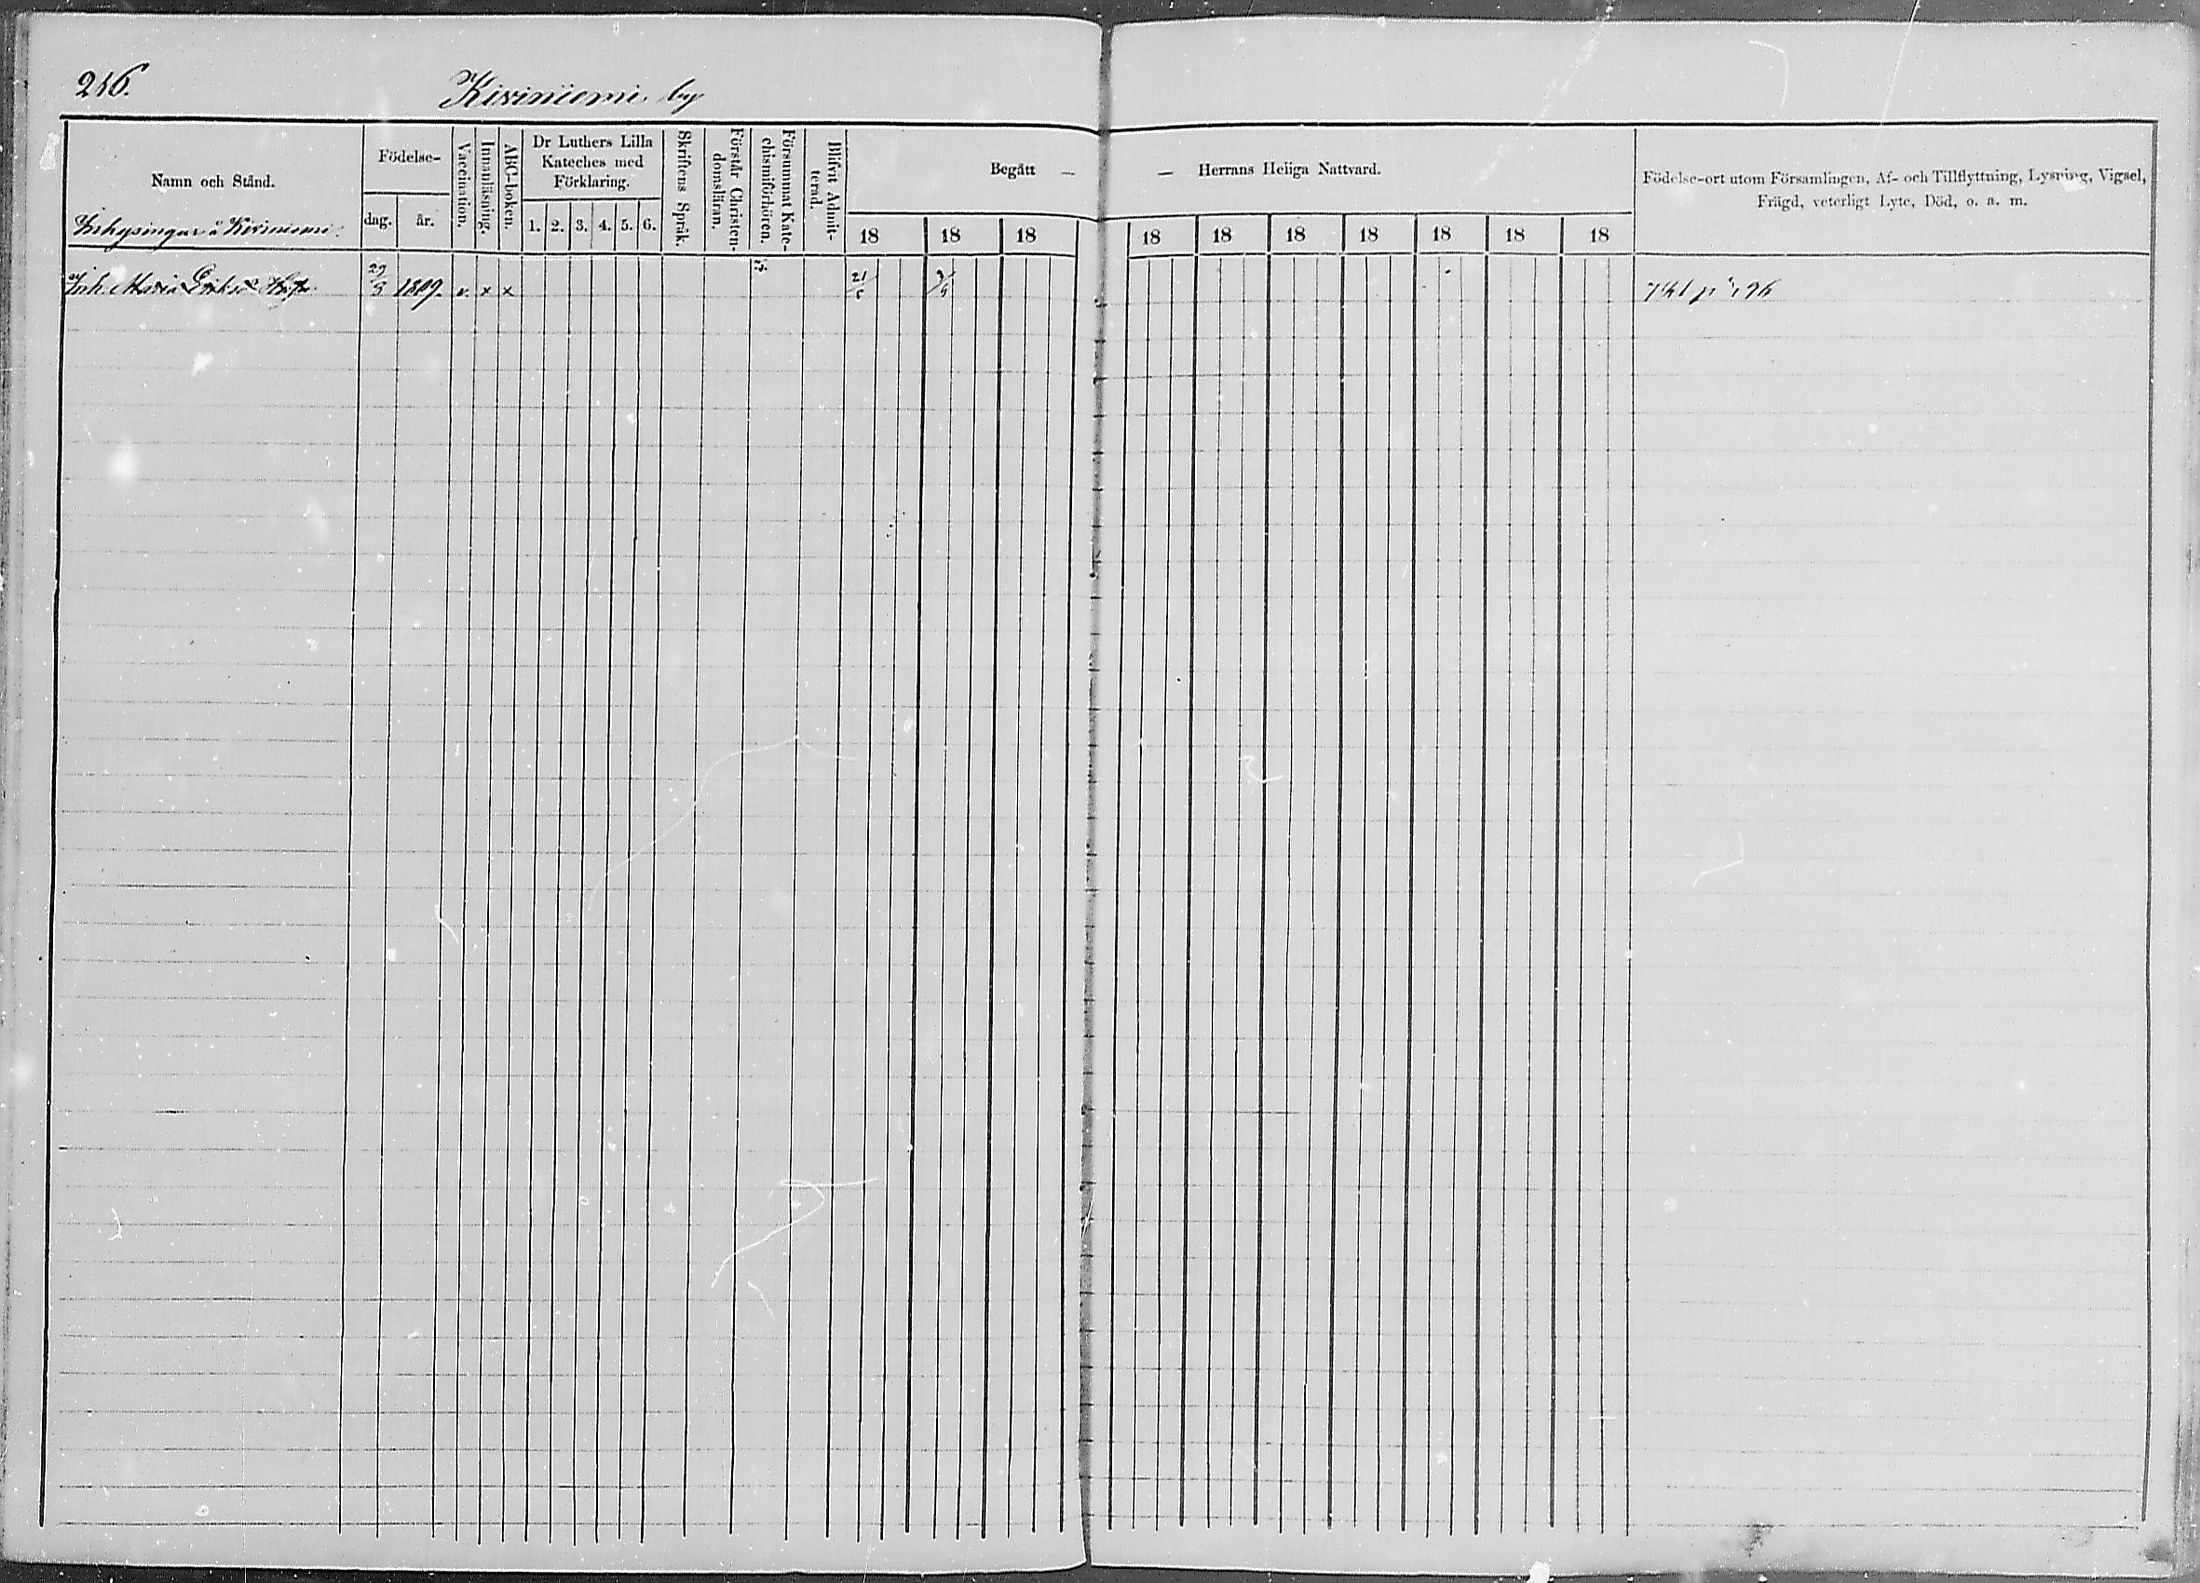 216.
Kiviniemi by
Namn och Stånd.
Födelse-
dag.
år.
Vaccination.
Innanläsning.
ABC-boken.
Dr Luthers Lilla
Kateches med
Förklaring.
1. 2. 3. 4. 5. 6.
Skriftens Språk.
Förstår Christen-
domsläran.
Försummat Kate-
chismiförhören.
Blifvit Admit-
terad.
Begått —
— Herrans Heliga Nattvard.
18 18 18 18 18 18 18 18 18 18
Födelse-ort utom Församlingen, Af- och Tillflyttning, Lysning, Vigsel,
Frägd, veterligt Lyte, Död, o. a. m.
Inhysingar å Kiviniemi.
Inh. Maria 29/3 1809. v. x x 21/6